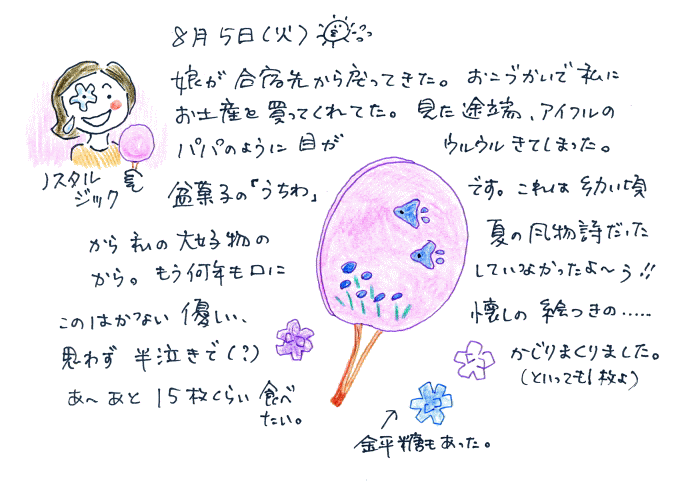 8月5日(火)
娘が 合宿先から戻ってきた。 おこづかいで 私に
お土産を 買ってくれてた。 見た途端、アイフルの
パパのように 目が ウルウル きてしまった。
ノスタルジック
盆菓子の「うちわ」 です。これは 幼い頃
から 私の 大好物の 夏の風物詩だった
から。もう何年も口に していなかったよ〜う!!
このはかない 優しい、 懐しの 絵つきの……
思わず 半泣きで(?) かじりまくりました。
(といっても1枚よ)
あ〜あと 15枚くらい 食べ
たい。
金平糖もあった。